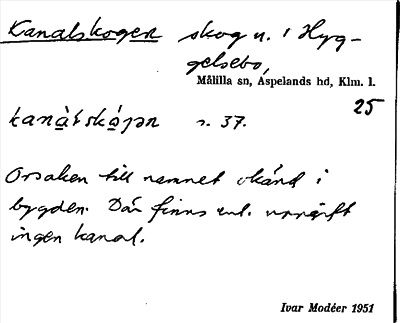 Kanalskogen skog n. i Hyg-
gelsebo,
Målilla sn, Aspelands hd, Klm. l.
25
kanàlskògən s. 37.
Orsaken till namnet okänd i
bygden. Där finns enl. uppgift
ingen kanal.
Ivar Modéer 1951